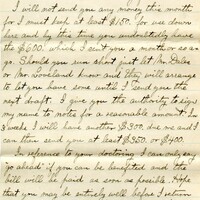 I will not send you any money this month
for I must keep at least $150. for use down
here and by this time you undoubtedly have
the $600. which I sent you a month or so a-
go. Should you run short just let Mr. Dales
or Mr. Loveland know and they will arrange
to let you have some until I send you the
next draft. I give you the authority to sign
my name to notes for a reasonable amount. In
weeks I will have another $300. due me and I
can then send you at least $350. or $400.
In reference to your doctoring I can only say
"go ahead" if you can be benefited and the
bill will be paid as soon as possible. Hope
that you may be entirely well before I return